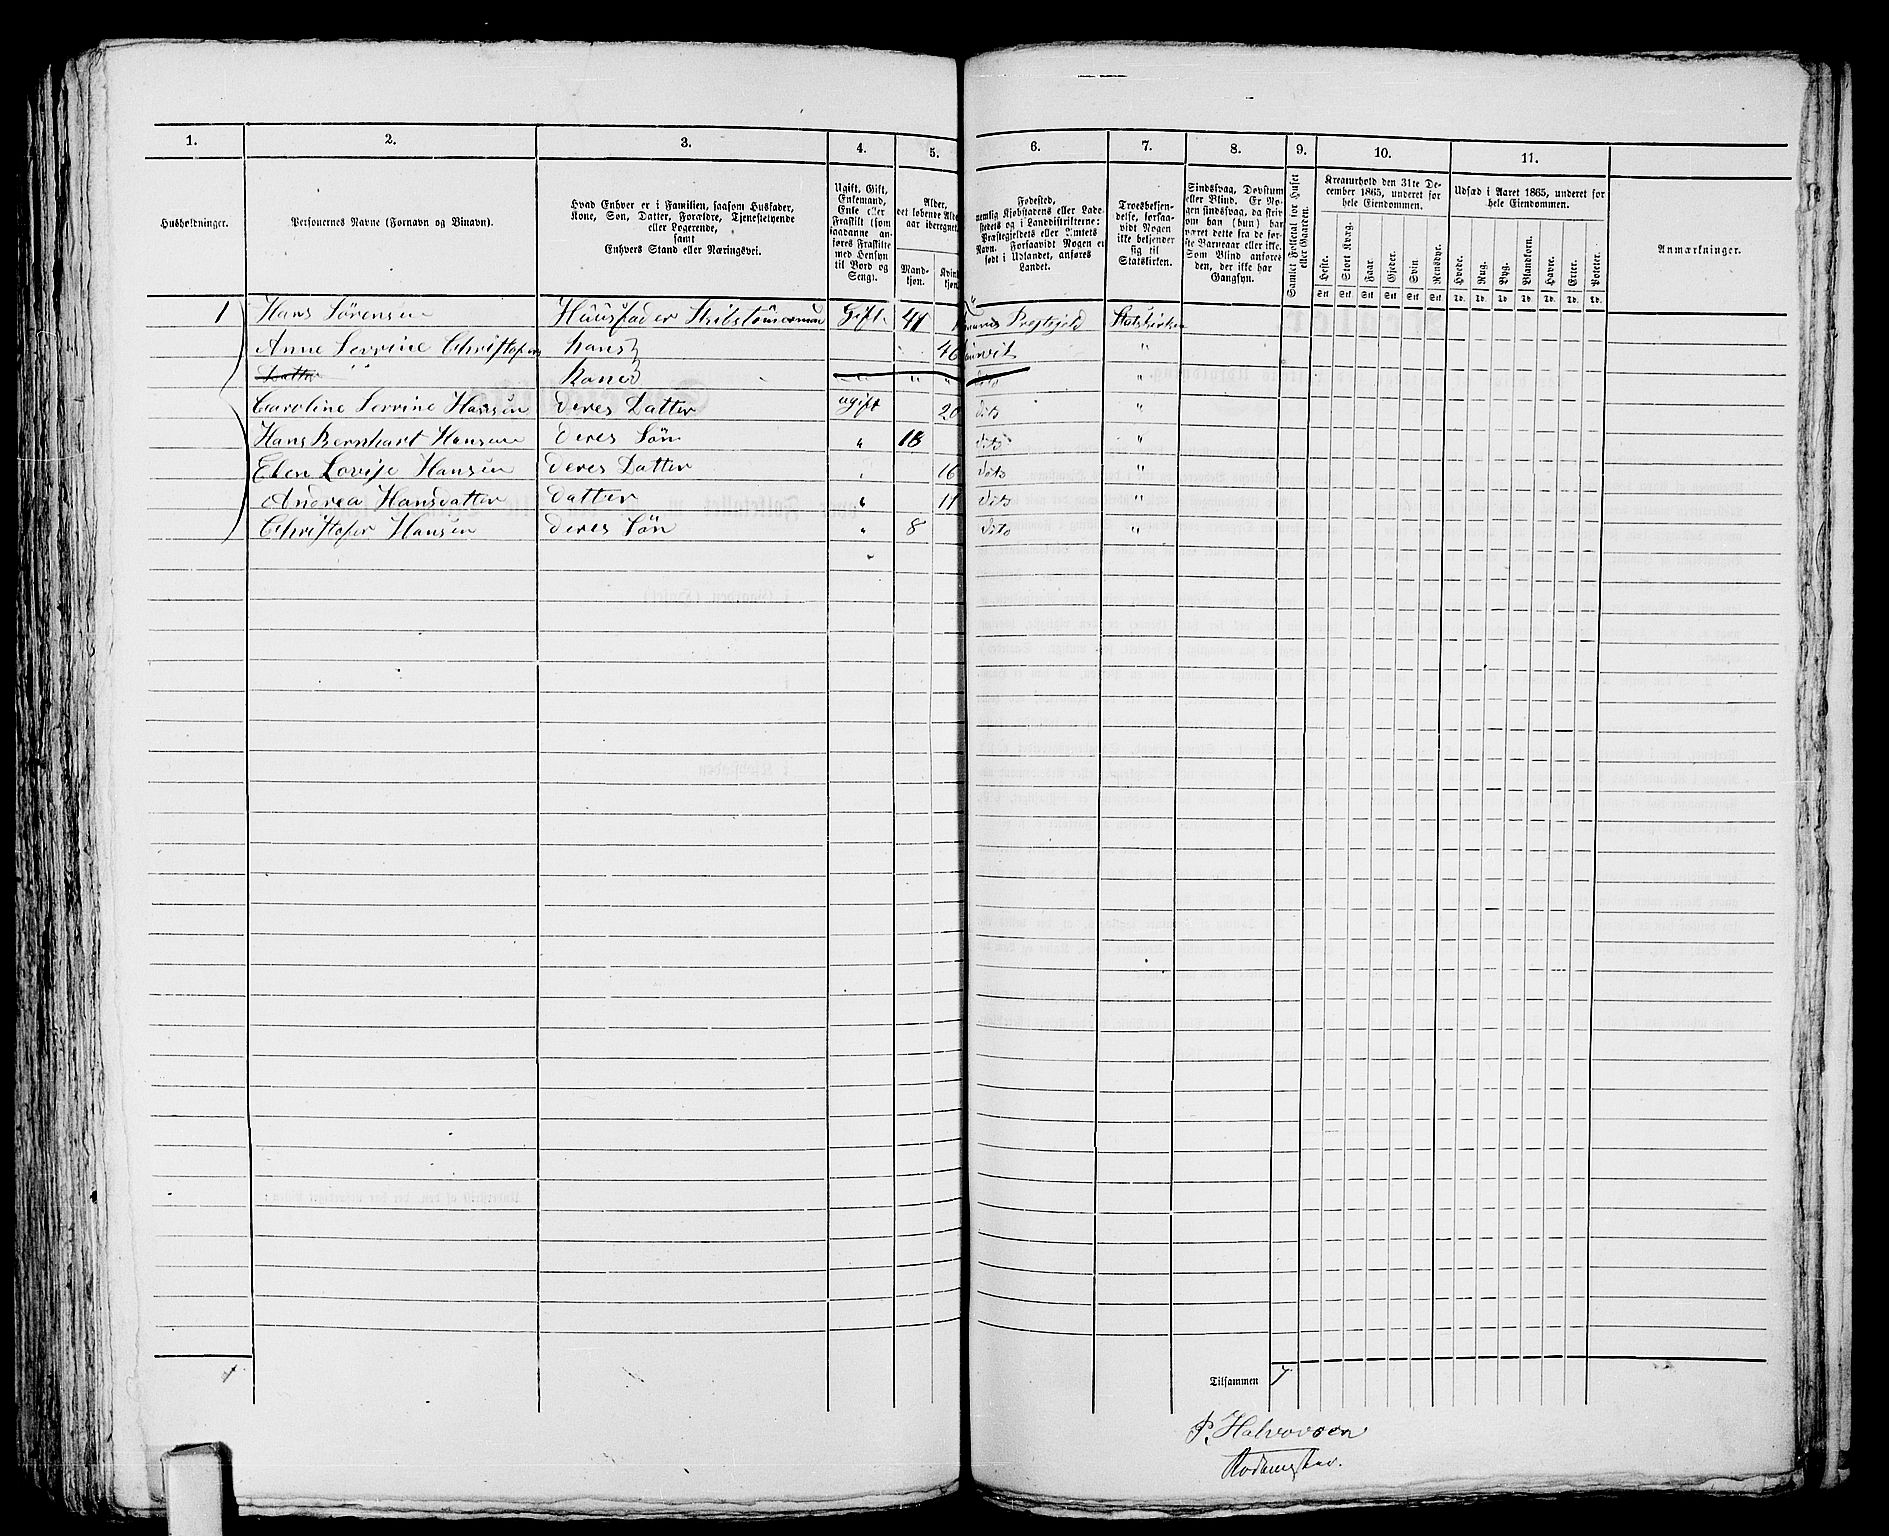 1. 2. 3. 4. 5. 6. 7. 8. 9. 10. 11.
Husholdninger.
Personernes Navne (Fornavn og Binavn).
Hvad Enhver er i Familien, saasom Husfader,
Kone, Søn, Datter, Forældre, Tjenestetyende
eller Logerende,
samt
Enhvers Stand eller Næringsvei.
Ugift, Gift,
Enkemand,
Enke eller
Fraskilt (som
saadanne an-
føres Fraskilte
med Hensyn
til Bord og
Seng).
Alder,
det løbende Alders-
aar iberegnet.
Mand-
kjøn.
Kvinde-
kjøn.
Fødested,
nemlig Kjøbstadens eller Lade-
stedets og i Landdistrikterne:
Præstegjeldets eller Amtets
Navn. Forsaavidt Nogen er
født i Udlandet, anføres
Landet.
Troesbekjen-
delse, forsaa-
vidt Nogen
ikke bekjender
sig til
Statskirken.
Sindssvag, Døvstum
eller Blind. Er No-
gen sindssvag, da skri-
ves om han (hun) har
været dette fra de før-
ste Barneaar eller ikke.
Som Blind anføres
den, der ikke har
Gangsyn.
Samlet Folketal for Huset
eller Gaarden.
Kreaturhold den 31te De-
cember 1865, underet for
hele Eiendommen.
Heste. Stort Kvæg. Faar. Gjeder. Svin. Rensdyr.
Stk Stk Stk Stk Stk Stk
Udsæd i Aaret 1865, underet for
hele Eiendommen.
Hvede. Rug. Byg. Blandkorn. Havre. Erter. Poteter.
Td. Td. Td. Td. Td. Td. Td.
Anmærkninger.
1 Hans Sørensen Huusfader Gift 41 Prestegjeld Statskirken
Anne Serrine Christofers hans 46 "
Datter " " Kone " " dito "
Caroline Serrine Hansen deres Datter ugift 20 dito "
Hans Bernhart Hansen deres Søn " 18 dito "
Elen Lovise Hansen deres Datter " 16 dito "
Andrea Hansdatter datter " 11 dito "
Christofer Hansen deres Søn " 8 dito "
"
1
Tilsammen 7
P. Halvorsen